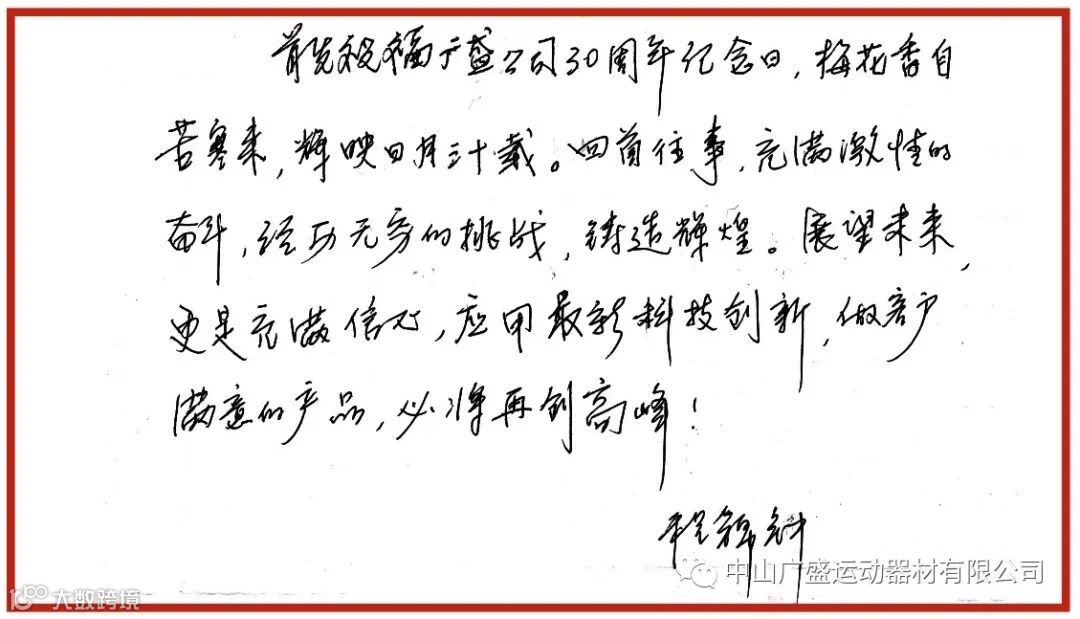 首先祝福广盛公司30周年纪念日，梅花香自
苦寒来，辉映日月三十载。回首往事，充满激情的
奋斗，经历无穷的挑战，铸造辉煌。展望未来，
更是充满信心，应用最新科技创新，做客户
满意的产品，必将再创高峰！
程锦
中山广盛运动器材有限公司
大数跨境